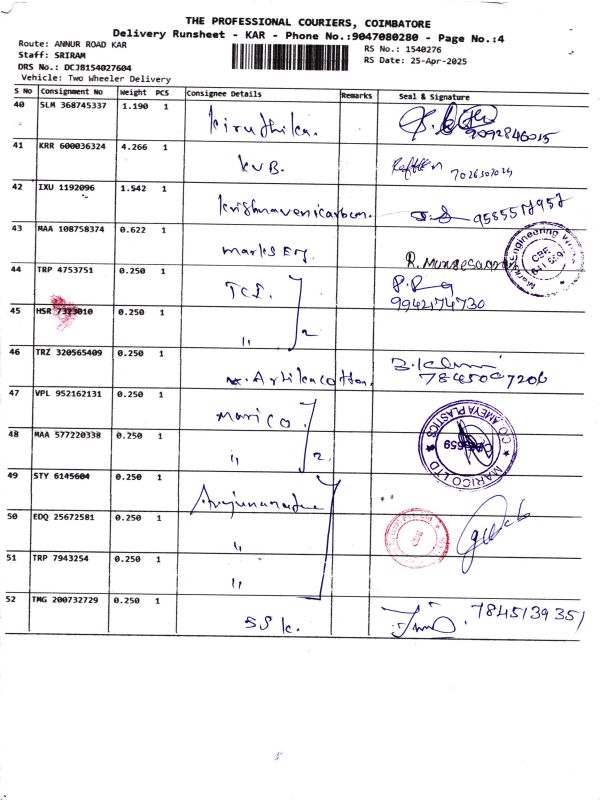 THE PROFESSIONAL COURIERS, COIMBATORE
Delivery Runsheet - KAR - Phone No.:9047080280 - Page No.:4
Route: ANNUR ROAD KAR RS No.: 1540276
Staff: SRIRAM RS Date: 25-Apr-2025
DRS No.: DCJB154027604
Vehicle: Two Wheeler Delivery
S No Consignment No Weight PCS Consignee Details Remarks Seal & Signature
40 SLM 368745337 1.190 1 kiruthika. 9092846015
41 KRR 600036324 4.266 1 KVB. 7026307024
42 IXU 1192096 1.542 1 krishnavenicarbon.
43 MAA 108758374 0.622 1 marks Eng R. Murugesan
44 TRP 4753751 0.250 1 TCI. 9942174730
45 HSR 7323010 0.250 1 " 2
46 TRZ 320565409 0.250 1 7845047206
47 VPL 952162131 0.250 1 Marico MARICO LTD C/O. AMEYA PLASTICS
48 MAA 577220338 0.250 1 " 2
49 STY 6145604 0.250 1
50 EDQ 25672581 0.250 1 "
51 TRP 7943254 0.250 1 "
52 TMG 200732729 0.250 1 SSK. 7845139351